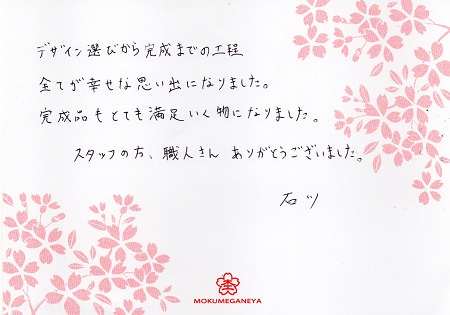 デザイン選びから完成までの工程
全てが幸せな思い出になりました。
完成品もとても満足いく物になりました。
スタッフの方、職人さん ありがとうございました。
石ツ
MOKUMEGANEYA